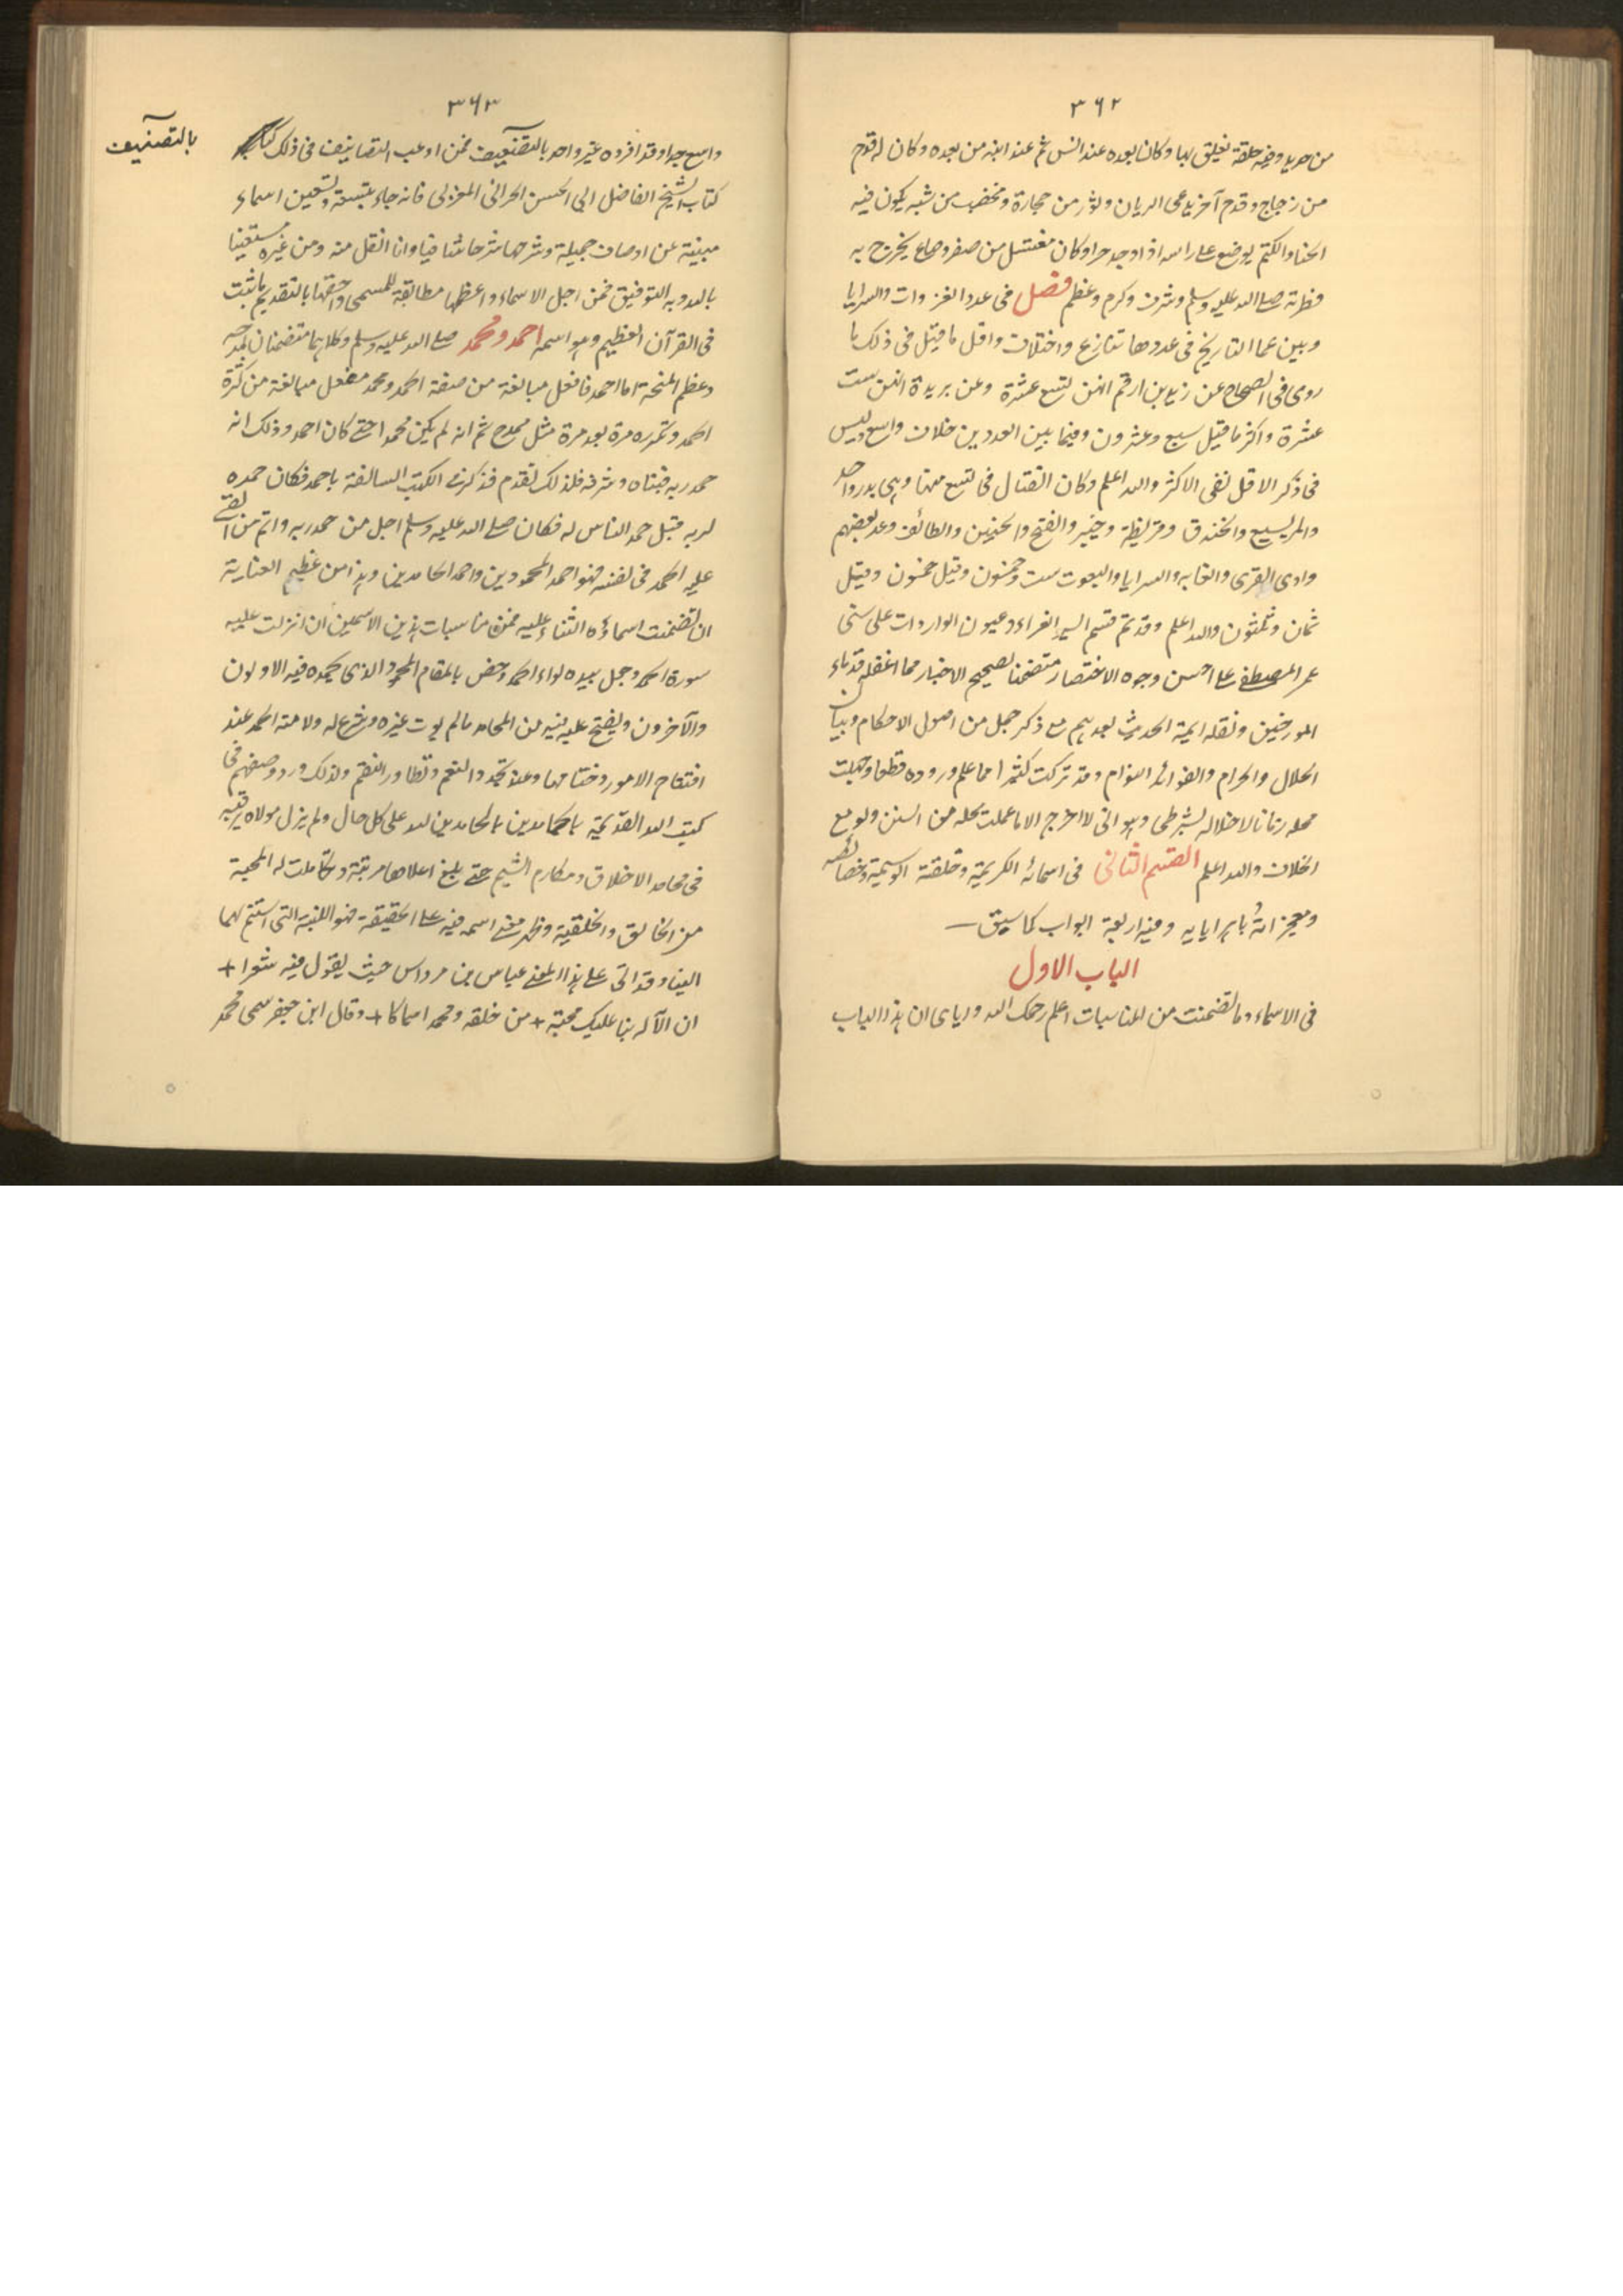 ٣٦٢
من حديد وفيه حلقة تعلق بها وكان بعده عند انس ثم عند ابنه من بعده وكان له قدح
من زجاج وقدح آخر يدعى الريان وتور من حجارة ومخضب من شبه يكون فيه
الحنا والكتم يوضع على راسه اذا وجد حرا وكان مغتسل من صفر وصاع يخرج به
فطرته صلى الله عليه وسلم وشرف وكرم وعظم فصل فى عدد الغزوات والسرايا
وبين علما التاريخ فى عددها تنازع واختلاف واقل ما قيل فى ذلك ما
روى فى الصحاح عن زيد بن ارقم انهن تسع عشرة وعن بريدة انهن ست
عشرة واكثر ما قيل سبع وعشرون وفيما بين العددين خلاف واسع وليس
فى ذكر الاقل نفى الاكثر والله اعلم وكان القتال فى تسع منها وهى بدر واحد
والمريسيع والخندق وقريظة وخيبر والفتح والحنين والطائف وعد بعضهم
وادى القرى والغابه والسرايا والبعوث ست وخمسون وقيل خمسون وقيل
ثمان وثلثون والله اعلم وقد تم قسم السير الغراء وعيون الواردات على سنى
عمر المصطفى على احسن وجوه الاختصار متضمنا لصحيح الاخبار مما اغفله قدماء
المورخين ونقله ايمة الحديث بعدهم مع ذكر جمل من اصول الاحكام وبيان
الحلال والحرام والفوائد التوام وقد تركت كثيرا مما علم وروده قطعا وجهلت
محله زمانا لاخلاله بشرطى وهو انى لا اخرج الا ما عملت محله من السنن ولو مع
الخلاف والله اعلم القسم الثانى فى اسمائه الكريمة وخلقته الوسيمة وخصائصه
ومعجزاته باهر ايايه وفيه اربعة ابواب كما سبق
الباب الاول
فى الاسماء وما تضمنت من المناسبات اعلم رحمك الله واياى ان هذا الباب
٣٦٣
واسع جدا وقد افرده غير واحد بالتصنيف فمن اوعب التصانيف فى ذلك
بالتصنيف
كتاب الشيخ الفاضل ابى الحسن الحرالى المغربى فانه جاء بتسعة وتسعين اسماء
مبينة عن اوصاف جميلة وشرحها شرحا شافيا وانا انقل منه ومن غيره مستعينا
بالله وبه التوفيق فمن اجل الاسماء واعظمها مطابقة للمسمى واحقها بالتقديم ما ثبت
فى القرآن العظيم وهو اسمه احمد ومحمد صلى الله عليه وسلم وكلاهما متضمنان لمدحه
وعظم المنحة اما احمد فافعل مبالغة من صفة الحمد ومحمد مفعل مبالغة من كثرة
الحمد وتكرره مرة بعد مرة مثل ممدح ثم انه لم يكن محمدا حتى كان احمد وذلك انه
حمد ربه فنبأه وشرفه فلذلك تقدم فذكرت الكتب السالفة باحمد فكان حمده
لربه قبل حمد الناس له فكان صلى الله عليه وسلم اجل من حمد ربه واتم من القى
عليه الحمد فى نفسه فهو احمد المحمودين واحمد الحامدين وهذا من عظيم العناية
ان تضمنت اسماؤه الثناء عليه فمن مناسبات هذين الاسمين ان انزلت عليه
سورة الحمد وجعل بيده لواء الحمد وخص بالمقام المحمود الذى يحمده فيه الاولون
والآخرون ويفتح عليه فيه من المحامد ما لم يوت غيره وشرع له ولامته الحمد عند
افتتاح الامور وختامها وعند تجدد النعم وتطاور النقم ولذلك ورد وصفهم فى
كتب الله القديمة بالحمادين بالحامدين لله على كل حال ولم يزل مولاه يرقيه
فى محامد الاخلاق ومكارم الشيم حتى بلغ اعلاها مرتبة وتكاملت له المحبة
من الخالق والخليقة وظهر معنى اسمه فيه على الحقيقة فهو اللبنة التى استتم بها
البناء وقد اتى على هذا المعنى عباس بن مرداس حيث يقول فيه شعرا +
ان الآله بنا عليك محبة + من خلقه ومحمدا سماكا + وقال ابن جعفر سمى محمد